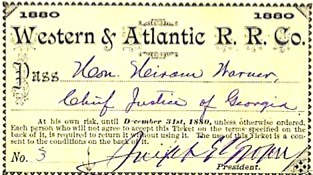 1880 1880
Western & Atlantic R. R. Co.
Pass Hon Hiram Warner,
Chief Justice of Georgia
At his own risk, until December 31st, 1880, unless otherwise ordered.
Each person who will not agree to accept this Ticket on the terms specified on the
back of it, is required to return it without using it. The use of this Ticket is a con-
sent to the conditions on the back of it.
No. 3 Joseph E Brown
President.